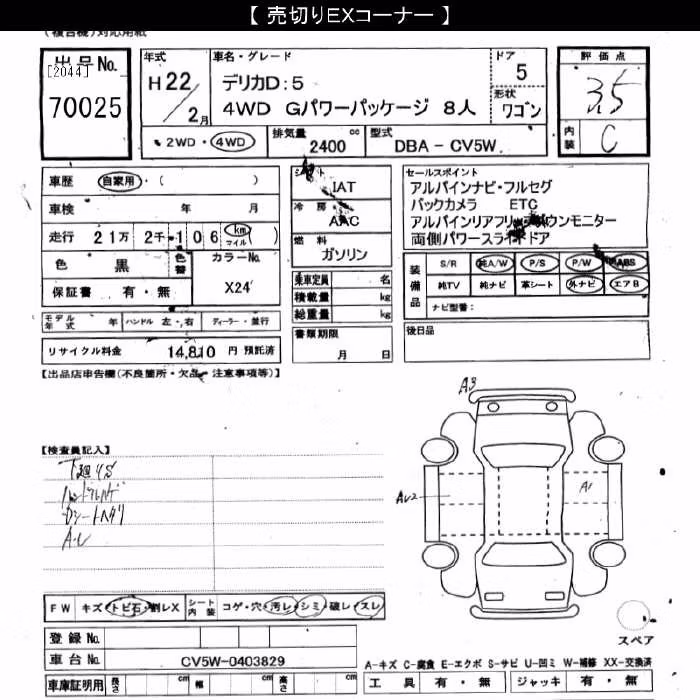 【 売切りEXコーナー 】
(複合機)対応用紙
出品No.
[2044]
70025
年式
H22/2月
車名・グレード
デリカD:5
4WD Gパワーパッケージ 8人
ドア
5
形状
ワゴン
評価点
3.5
内装
C
2WD・4WD
排気量
2400 cc
型式
DBA - CV5W
車歴 自家用・( )
車検 年 月
走行 21万 2千 106 km マイル ( )
色 黒
色替
カラーNo.
X24
保証書 有・無
シフト
IAT
冷房
AAC
燃料
ガソリン
乗車定員 名
積載量 kg
総重量 kg
書類期限
月 日
セールスポイント
アルパインナビ・フルセグ
バックカメラ ETC
アルパインリアフリップダウンモニター
両側パワースライドドア
装備品
S/R 純A/W P/S P/W ABS
純TV 純ナビ 革シート 外ナビ エアB
ナビ型番:
後日品
モデル年式 年 ハンドル 左・右 ディーラー・並行
リサイクル料金 14,810 円 預託済
【出品店申告欄(不良箇所・欠品・注意事項等)】
【検査員記入】
下廻りS
ハンドルハゲ
Dシートヘタリ
A・U
A3
AU2
A1
FW キズ・トビ石・割レX
シート内装 コゲ・穴・汚レ・シミ・破レ・スレ
スペア
登録 No.
車台 No. CV5W-0403829
車庫証明用 長さ cm 幅 cm 高さ cm
A-キズ C-腐食 E-エクボ S-サビ U-凹ミ W-補修 XX-交換済
工具 有・無 ジャッキ 有・無